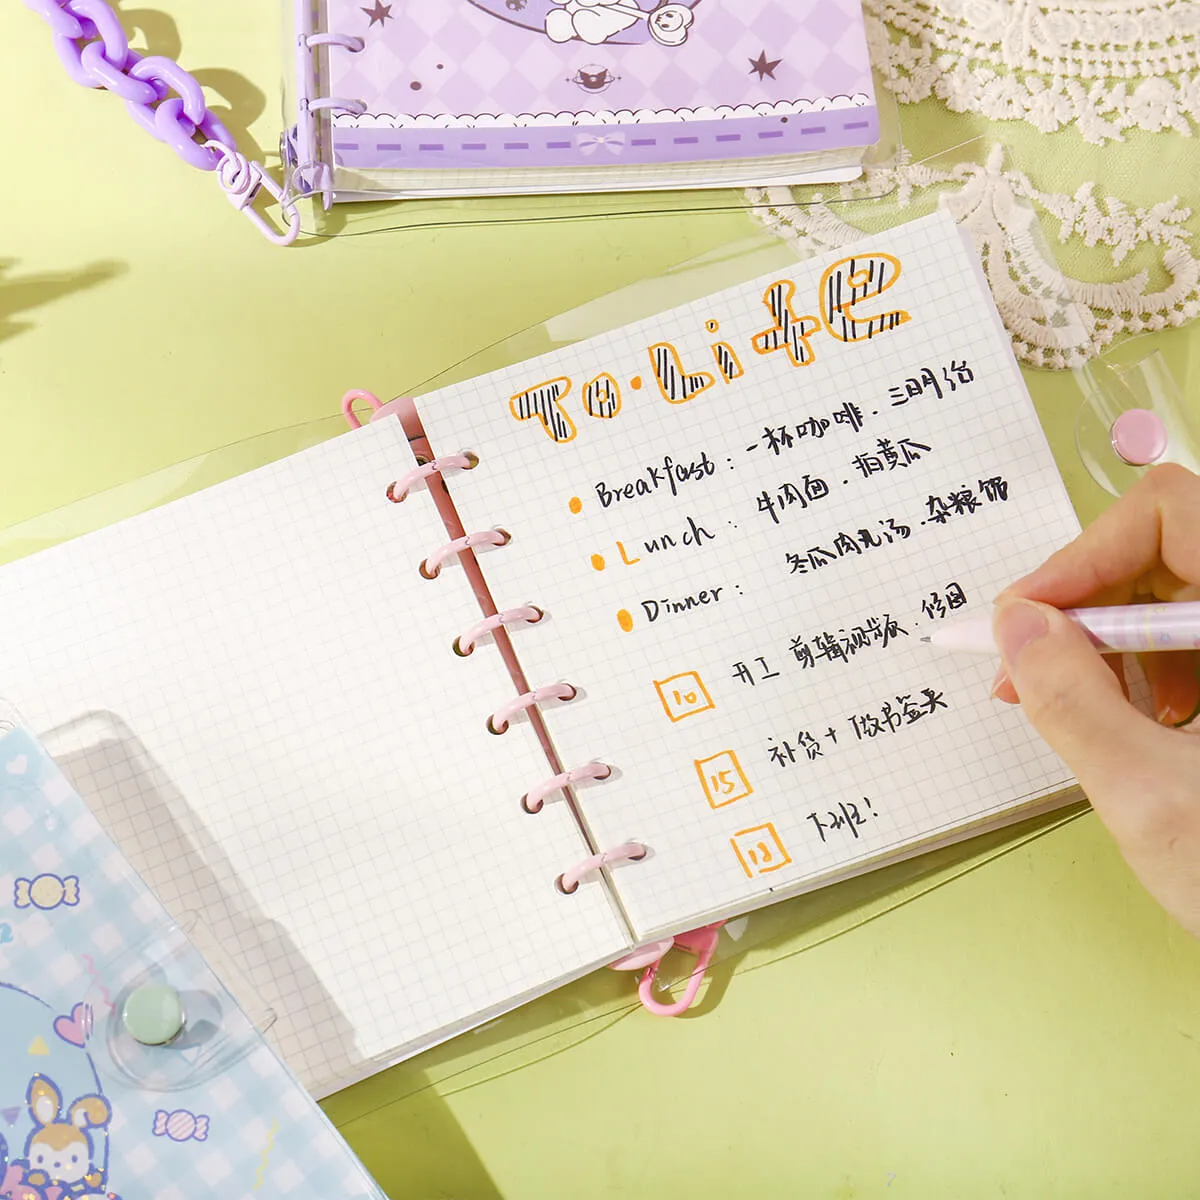 To·Life
Breakfast：一杯咖啡．三明治
Lunch：牛肉面．拍黄瓜
Dinner：冬瓜肉丸汤．杂粮饭
10 开工 剪辑视频．修图
15 补货＋做书签夹
18 下班！